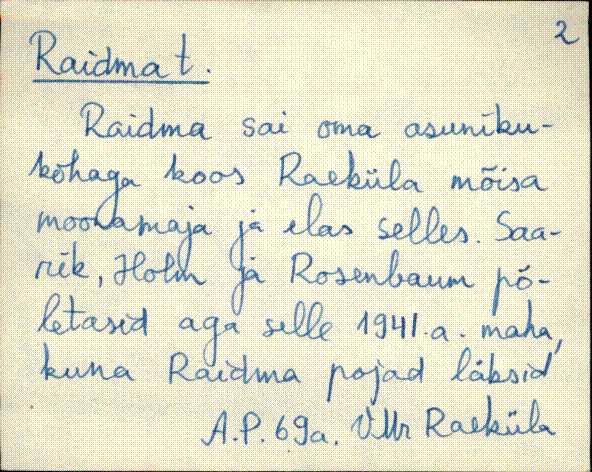 2
Raidma t.
Raidma sai oma asuniku-
kõhaga koos Raeküla mõisa
moonamaja ja elas selles. Saa-
rik, Holm ja Rosenbaum põ-
letasid aga selle 1941.a. maha,
kuna Raidma pojad läksid
A.P. 69a. VMr Raeküla